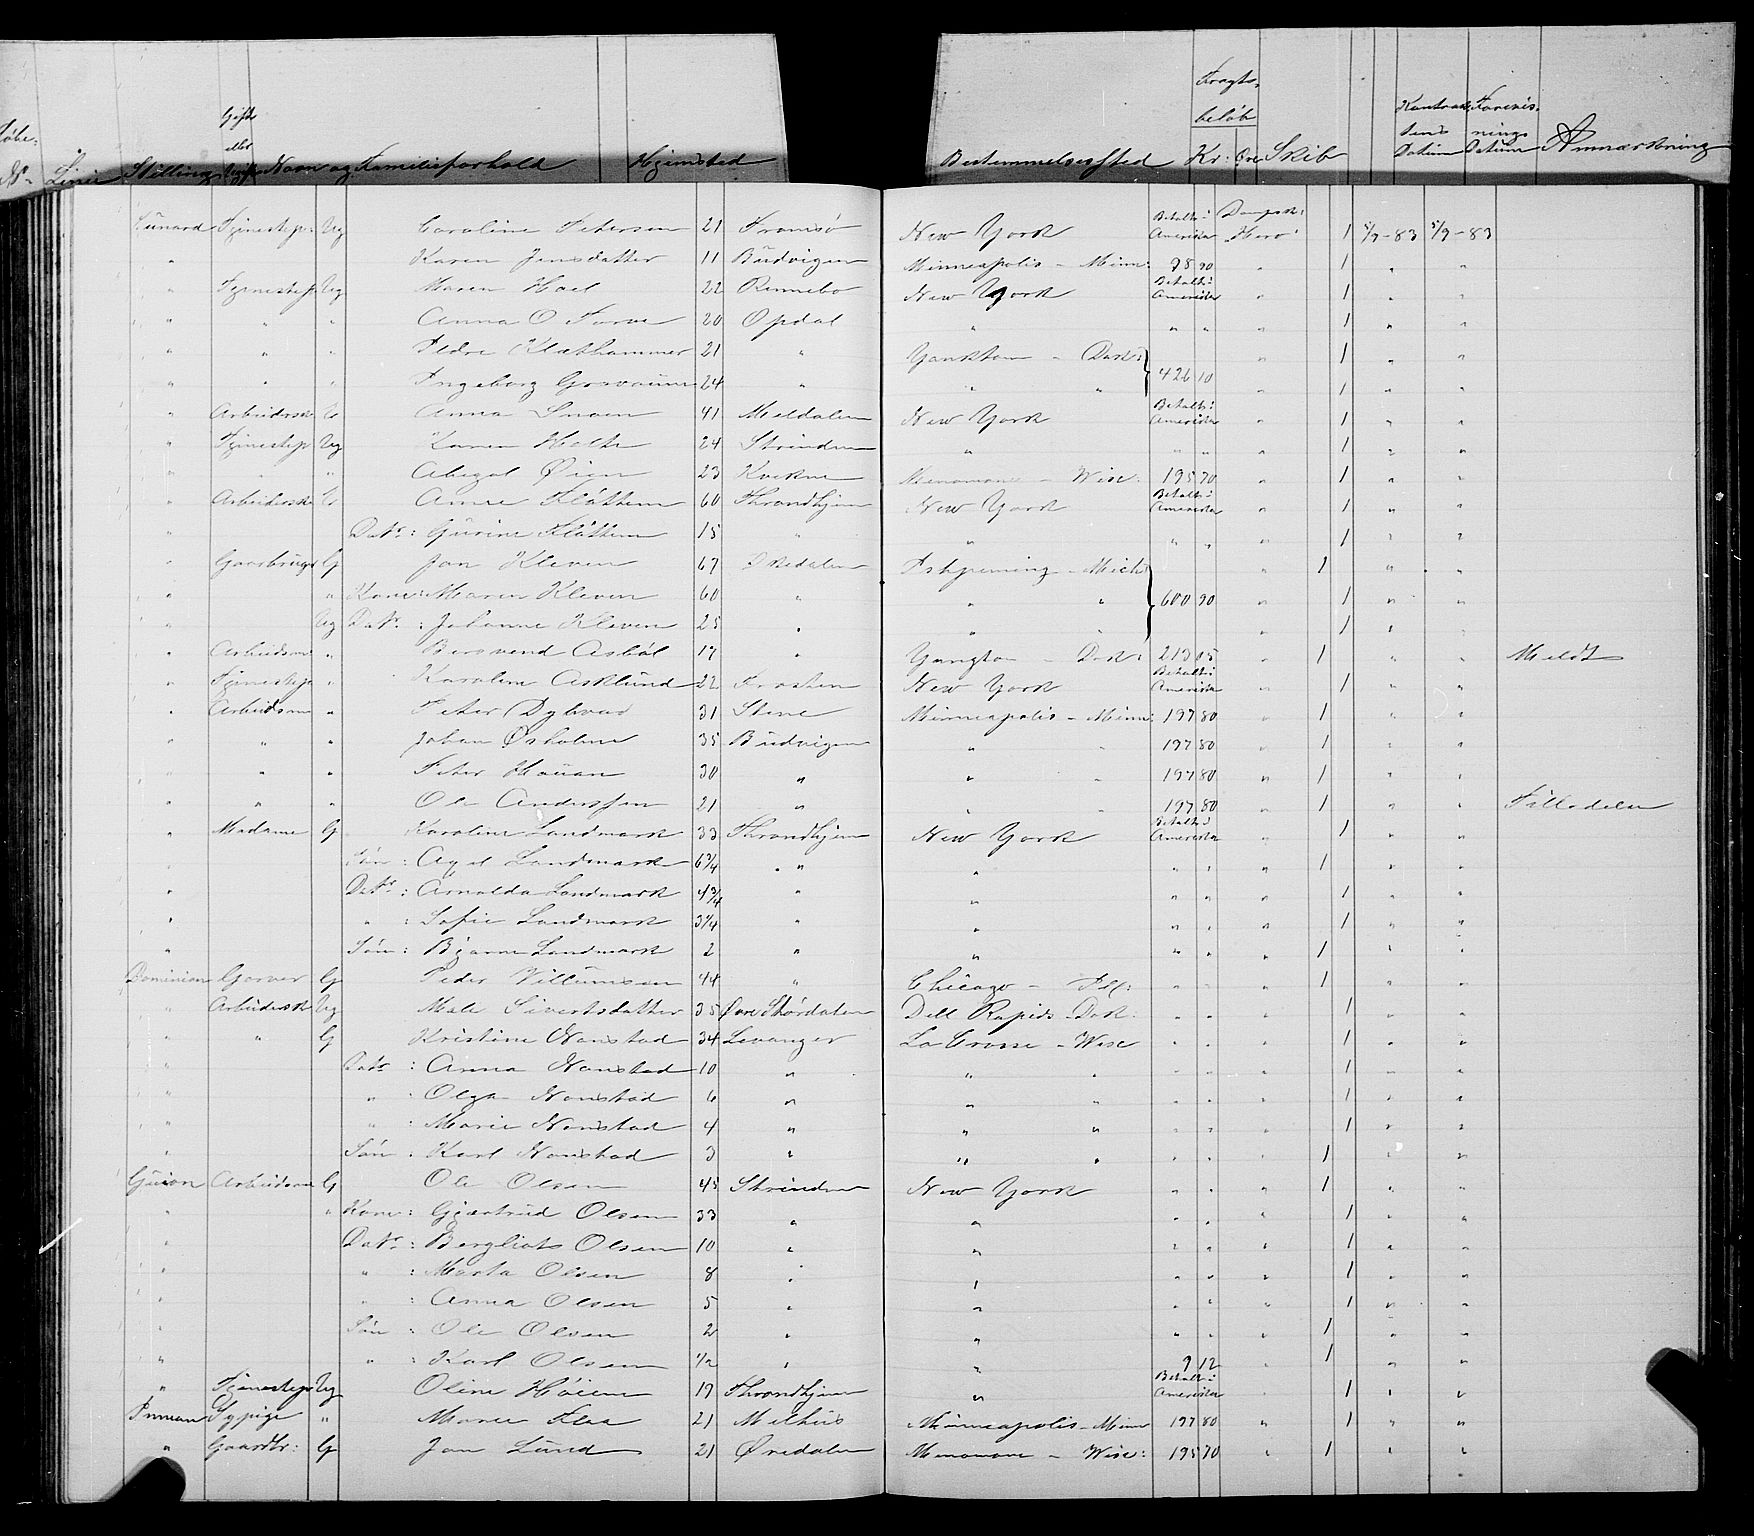 Gifte
Løbe- eller
No Linie Stilling Navn og Familieforhold Hjemsted
Fragts-
beløb
Kontrak- Forevis-
tens nings
Bestemmelsessted Kr: Øre Skib Datum Datum Anmærkning
Cunard Tjenestep: Ug Caroline Petersen 21 Tromsø New York Betalt i Amerika Dampsk: Hero 1 5/9-83 5/9-83
" Karen Jensdatter 11 Budvigen Minneapolis - Minn: 98 90 " 1 " "
" Tjenestep. Ug Maren Hoel 22 Rennebo New York Betalt i Amerika " 1 " "
" " " Anna O 20 Opdal " " " " 1 " "
" " " 21 " Yankton - Dak: " 1 " "
" " " Ingeborg 24 " " " 426 10 " 1 " "
" Arbeidersk Anna Snoen 41 Meldalen New York Betalt i Amerika " 1 " "
" Tjenestep Ug Karen Holte 24 Strinden " " " " 1 " "
" " " Abegal Øien 23 Kvikne Menomonee - Wisc: 195 70 " 1 " "
" Arbeiderske Anne Kløttem 60 Throndhjem New York Betalt i Amerika " 1 " "
" Datr: Gurine Kløttem 15 " " " " " 1 " "
" Gaardbruger G Jon Kleven 67 Ørkedalen Ishpeming - Mich: " 1 " "
" " Kone: Maren Kleven 60 " " " 600 90 " 1 " "
" Ug Datr: Johanne Kleven 25 " " " " 1 " "
" Arbeidsm " Bersvend Asbøl 17 " Yangton - Dak: 213 05 " 1 " " Meldt
" Tjenestepi " Karoline Asklund 22 Frosten New York Betalt i Amerika " 1 " "
" Arbeidsm " Peter Dybvad 31 Stene Minneapolis - Minn: 197 80 " 1 " "
" " " Johan Øsholm 35 Budvigen " " 197 80 " 1 " "
" " " Peter Houan 30 " " " 197 80 " 1 " "
" " " Ole Anderssen 21 " " " 197 80 " 1 " "
" Madame G Karoline Landmark 33 Throndhjem New York Betalt i Amerika " 1 " "
" Søn: Agel Landmark 6 3/4 " " " " " 1 " "
" Datr: Arnolda Landmark 4 3/4 " " " " " 1 " "
" " : Sofie Landmark 3 1/4 " " " " " 1 " "
" Søn: Bjarne Landmark 2 " " " " " 1 " "
Dominion Garver G Peder Villumsen 44 " Chicago - Ill: " " " 1 " "
" Arbeidersk Ug Male Sivertsdatter 35 Øvre Størdalen Dell Rapids - Dak: " " " 1 " "
" " G Kristine Nonstad 34 Levanger La Crosse - Wisc " " " 1 " "
" Datr: Anna Nonstad 10 " " " " " " 1 " "
" " : Olga Nonstad 6 " " " " " " 1 " "
" " : Marie Nonstad 4 " " " " " " 1 " "
" Søn: Karl Nonstad 3 " " " " " " 1 " "
Guion Arbeidsm G Ole Olsen 45 Strinden New York " " " 1 " "
" " Kone: Gjertrud Olsen 33 " " " " " 1 " "
" Datr: Bergliot Olsen 10 " " " " " 1 " "
" " : Marta Olsen 8 " " " " " 1 " "
" " : Anna Olsen 5 " " " " " 1 " "
" Søn: Ole Olsen 2 " " " " " 1 " "
" " : Karl Olsen 1/2 " " 9 12 " 1 " "
" Tjenestepi Ug Oline Høien 19 Throndhjem " Betalt i Amerika " 1 " "
Inman Sypige " Maren Flaa 21 Melhus Minneapolis - Minn 197 80 " 1 " "
" Gaardbr: G Jon Lund 21 Ørkedalen Menomone - Wisc: 195 70 " 1 " "